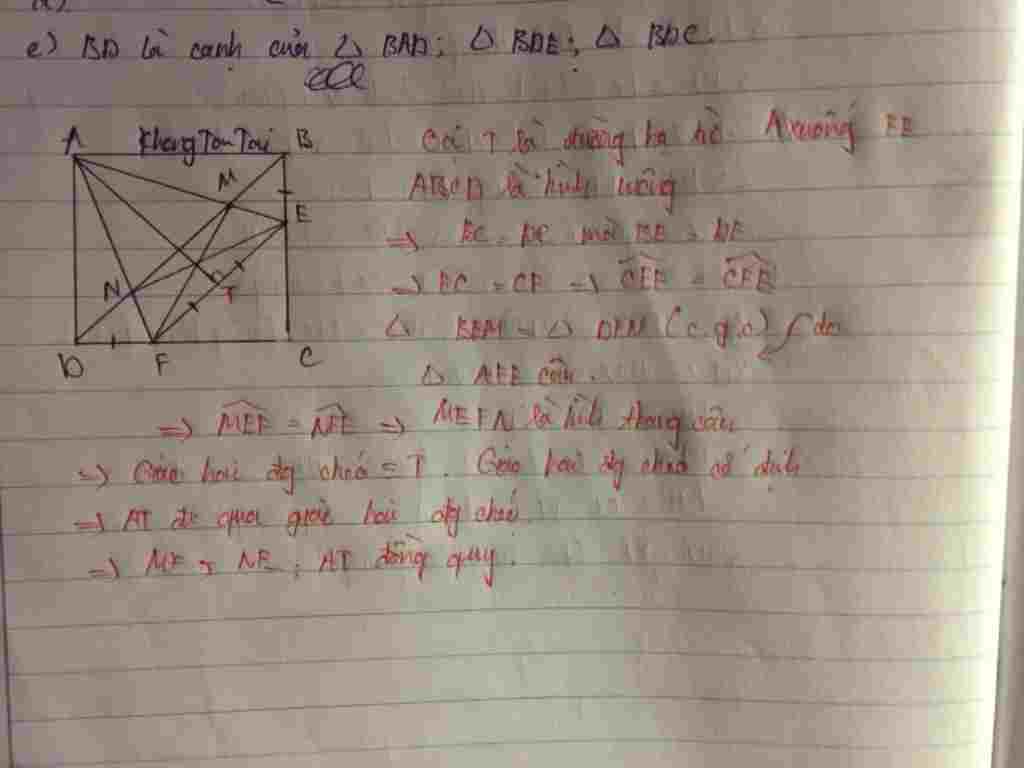 e) BD là cạnh của △ BAD; △ BDE; △ BDC.
A KhangTonTai B
M
E
N
T
D F C
Có T là đường hạ từ A xuống FE
ABCD là hình vuông
=> BC = DC mà BE = DF
=> EC = CF => CEF = CFE
△ BEM = △ DFN (c.g.c) do
△ AFE cân.
=> MEF = NFE => MEFN là hình thang cân
=> Giao hai đg chéo = T. Giao hai đg chéo cố định
=> AT đi qua giao hai đg chéo
=> MF, NE, AT đồng quy.